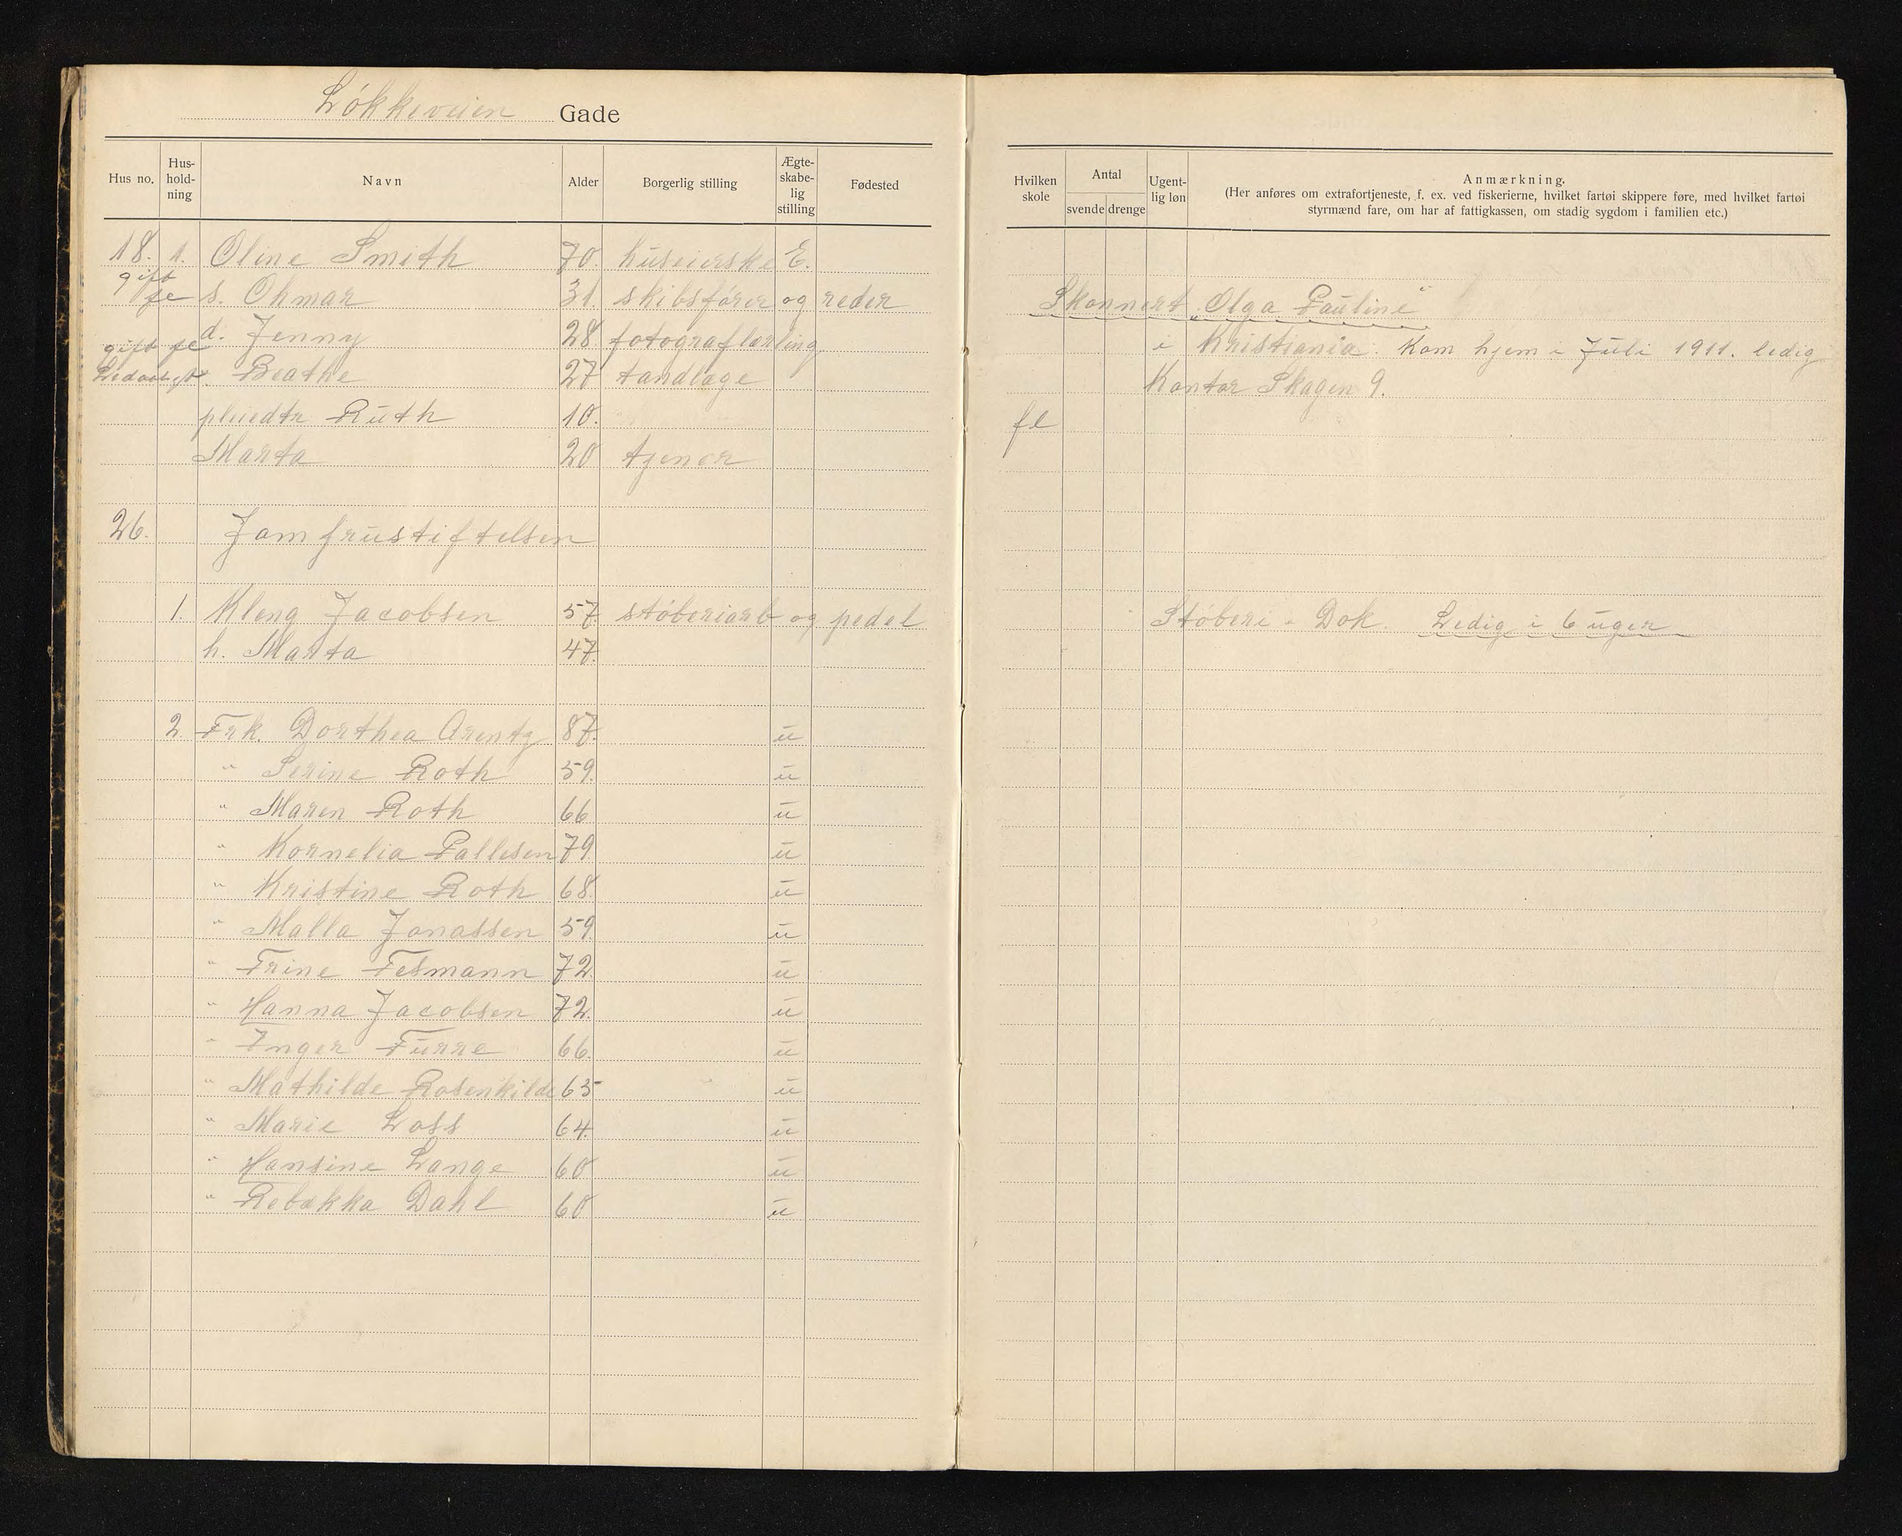 Løkkeveien Gade
Hus no. Hus-holdning Navn Alder Borgerlig stilling Ægte-skabe-lig stilling Fødested
18. 1. Oline Smith 70. huseierske E.
gift fe s. Ohmar 31. skibsfører og reder
gift fe d. Jenny 28 fotograflærling
Beathe 27 tandlæge
pluedtr Ruth 10.
Marta 20 tjener
26. Jomfrustiftelsen
1. Kleng Jacobsen 57. støberiarb og pedel
h. Marta 47.
2 Frk. Dorthea Arentz 87. u
" Serine Roth 59. u
" Maren Roth 66 u
" Kornelia Pallesen 79 u
" Kristine Roth 68. u
" Malla Jonassen 59 u
" Trine Tesmann 72. u
" Hanna Jacobsen 72. u
" Inger Furre 66. u
" Mathilde Rosenkilde 65 u
" Marie Loss 64. u
" Hansine Lange 60 u
" Rebækka Dahl 60 u
Hvilken skole Antal svende drenge Ugent-lig løn Anmærkning.
(Her anføres om extrafortjeneste, f. ex. ved fiskerierne, hvilket fartøi skippere føre, med hvilket fartøi
styrmænd fare, om har af fattigkassen, om stadig sygdom i familien etc.)
Skonnert „Olga Pauline"
i Kristiania. Kom hjem i Juli 1911. ledig
Kontor Skagen 9.
fl
Støberi - Dok. Ledig i 6 uger